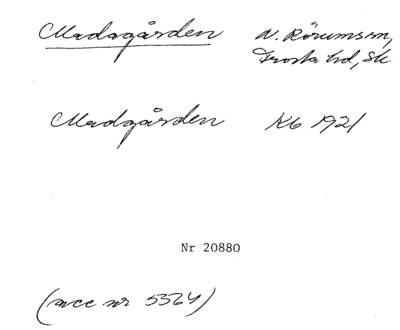 Madagården N. Rörumsm,
Frosta hd, Sk.
Madgården Kb 1921
Nr 20880
(acc nr 5524)